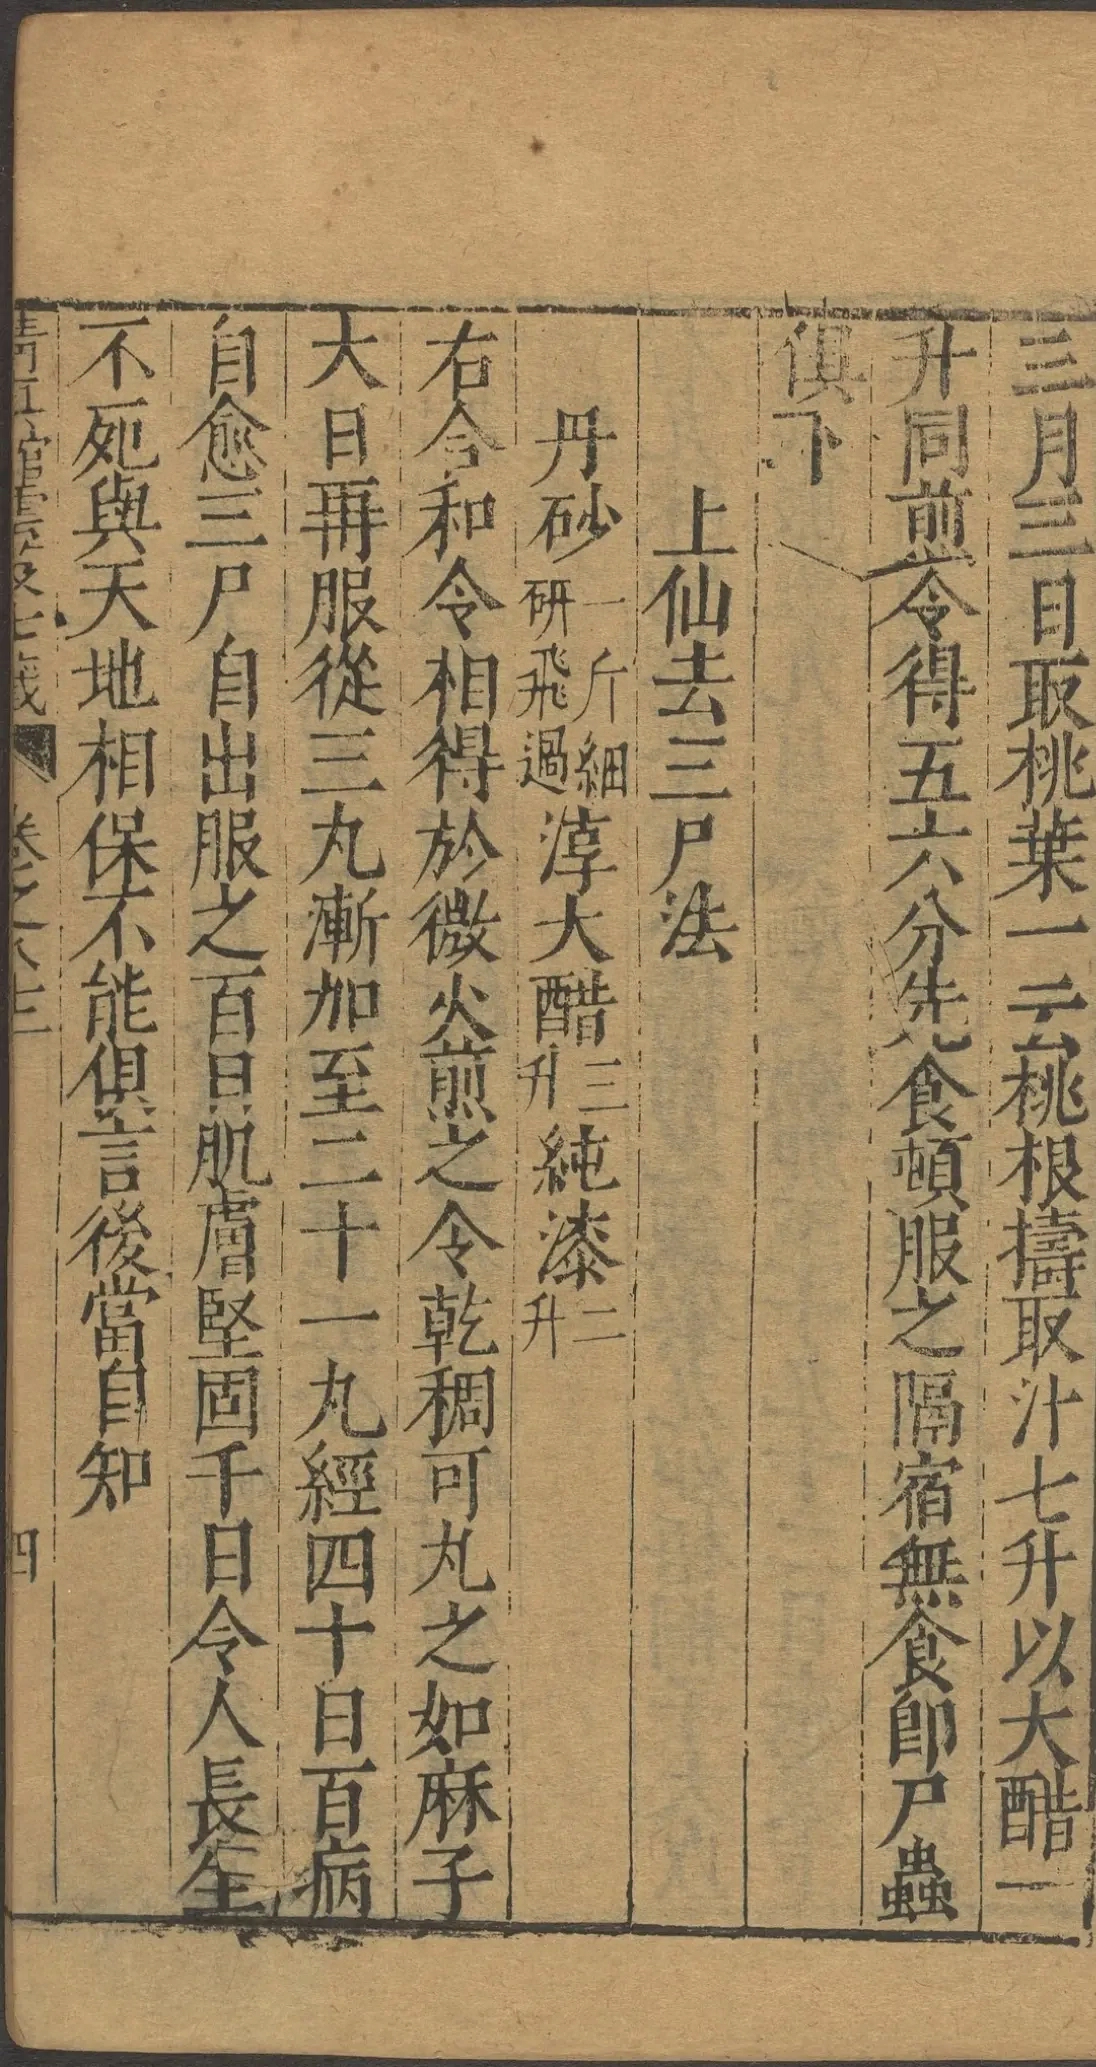 三月三日取桃葉一云桃根擣取汁七升以大醋一
升同煎令得五六分先食頓服之隔宿無食卽尸蟲
俱下
上仙去三尸法
丹砂一斤細研飛過淳大醋三升純漆二升
右合和令相得於微火煎之令乾稠可丸之如麻子
大日再服從三丸漸加至二十一丸經四十日百病
自愈三尸自出服之百日肌膚堅固千日令人長生
不死與天地相保不能俱言後當自知
四